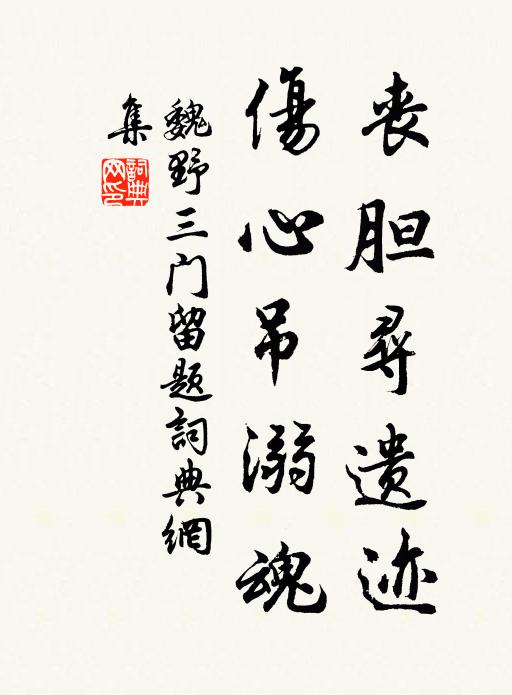 丧胆尋遗迹
傷心吊溺魂
魏野三门留题詞典網
集
詞典網印